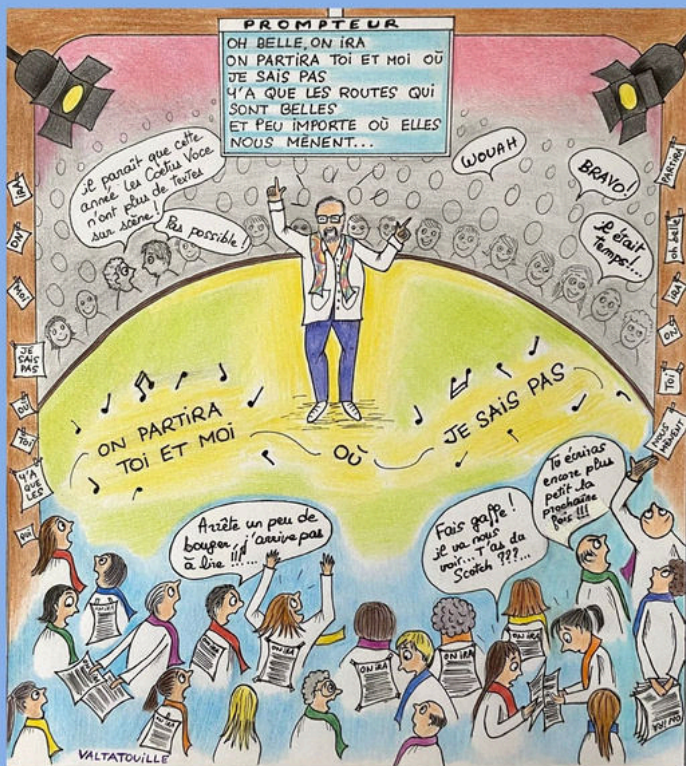 PROMPTEUR
OH BELLE, ON IRA
ON PARTIRA TOI ET MOI OÙ
JE SAIS PAS
Y'A QUE LES ROUTES QUI
SONT BELLES
ET PEU IMPORTE OÙ ELLES
NOUS MÈNENT...
il paraît que cette
année les Coetus Voce
n'ont plus de textes
sur scène !
Pas possible !
WOUAH
BRAVO !
il était
temps !...
IRA
ON
MOI
JE
SAIS
PAS
OÙ
TOI
Y'A
QUE
LES
QUI
PARTIRA
oh belle
IRA
ON
TOI
NOUS
MÈNENT
ON PARTIRA
TOI ET MOI
OÙ
JE SAIS PAS
Arrête un peu de
bouger, j'arrive pas
à lire !!!...
Fais gaffe !
il va nous
voir... T'as du
Scotch ???...
Tu écriras
encore plus
petit la
prochaine
fois !!!
ON IRA
ON IRA
ON IRA
ON IRA
ON IRA
ON IRA
ON IRA
ON IRA
VALTATOUILLE